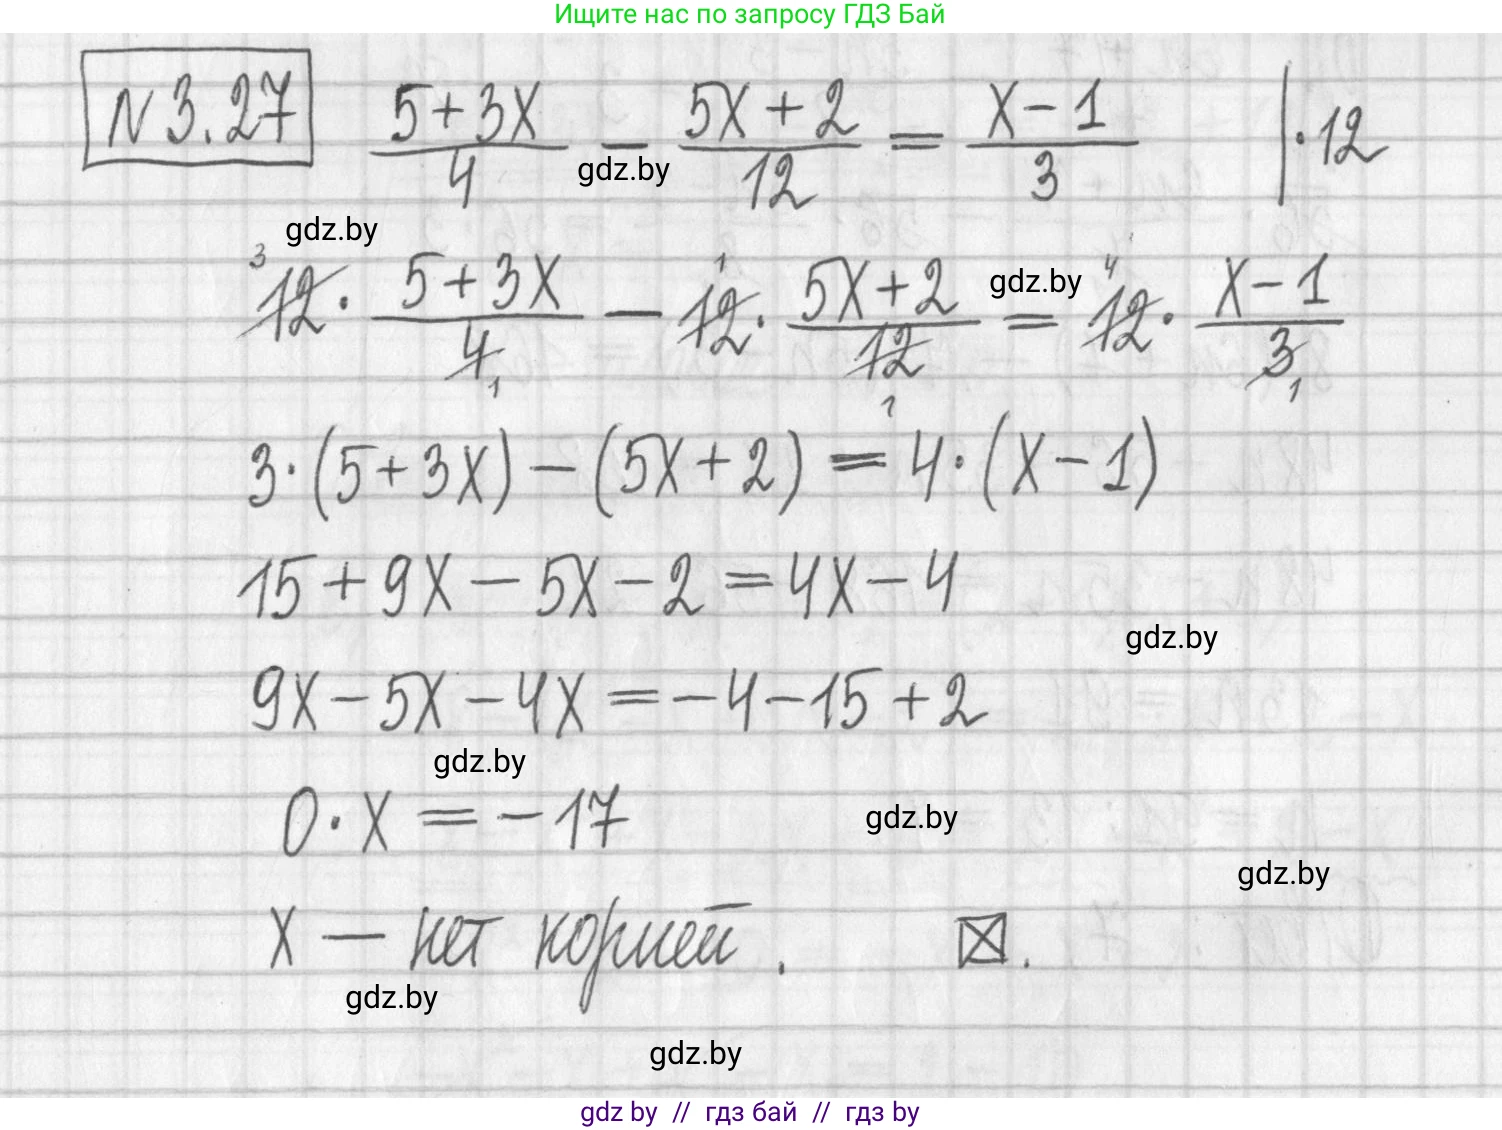 Ищите нас по запросу ГДЗ Бай
N 3.27 (5+3x)/4 − (5x+2)/12 = (x−1)/3 | · 12
gdz.by
gdz.by
³12 · (5+3x)/4₁ − ¹12 · (5x+2)/12₁ = ⁴12 · (x−1)/3₁
gdz.by
3·(5+3x) − (5x+2) = 4·(x−1)
15 + 9x − 5x − 2 = 4x − 4
gdz.by
9x − 5x − 4x = −4 − 15 + 2
gdz.by
0·x = −17
gdz.by
gdz.by
x — нет корней. ☒.
gdz.by
gdz.by
gdz by // гдз бай // гдз by